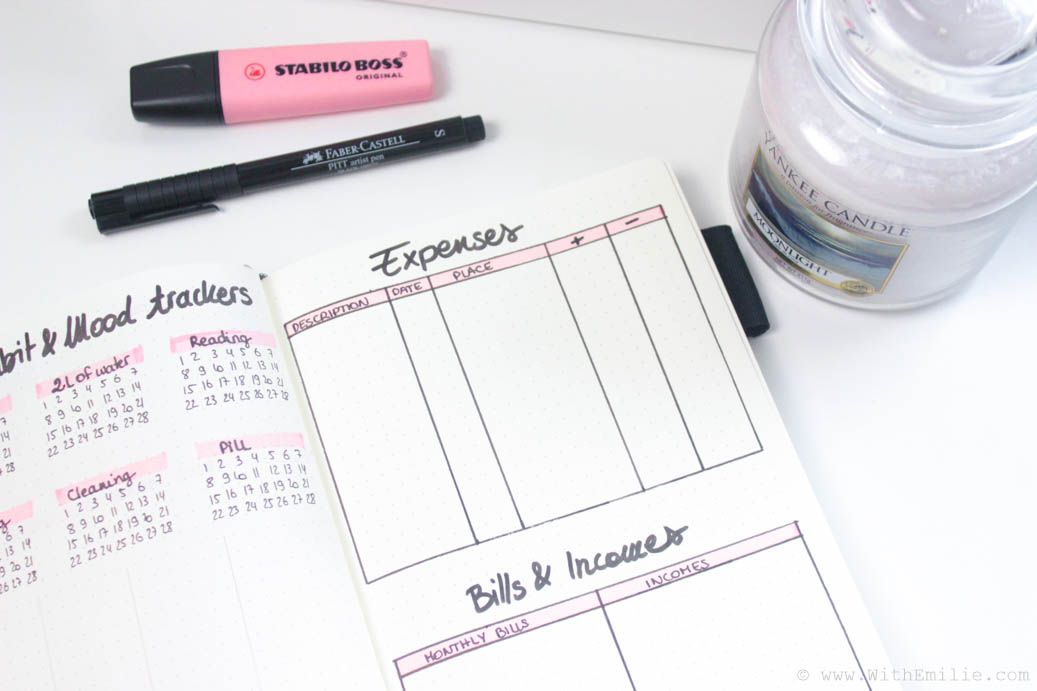 STABILO BOSS®
ORIGINAL
FABER-CASTELL
PITT artist pen
S
YANKEE CANDLE
MOONLIGHT
bit & Mood trackers
2L of water
1 2 3 4 5 6 7
8 9 10 11 12 13 14
15 16 17 18 19 20 21
22 23 24 25 26 27 28
Reading
1 2 3 4 5 6 7
8 9 10 11 12 13 14
15 16 17 18 19 20 21
22 23 24 25 26 27 28
7
14
21
28
Cleaning
1 2 3 4 5 6 7
8 9 10 11 12 13 14
15 16 17 18 19 20 21
22 23 24 25 26 27 28
Pill
1 2 3 4 5 6 7
8 9 10 11 12 13 14
15 16 17 18 19 20 21
22 23 24 25 26 27 28
g
6 7
13 14
20 21
26 27 28
Expenses
DESCRIPTION DATE PLACE + -
Bills & Incomes
MONTHLY BILLS INCOMES
© www.WithEmilie.com